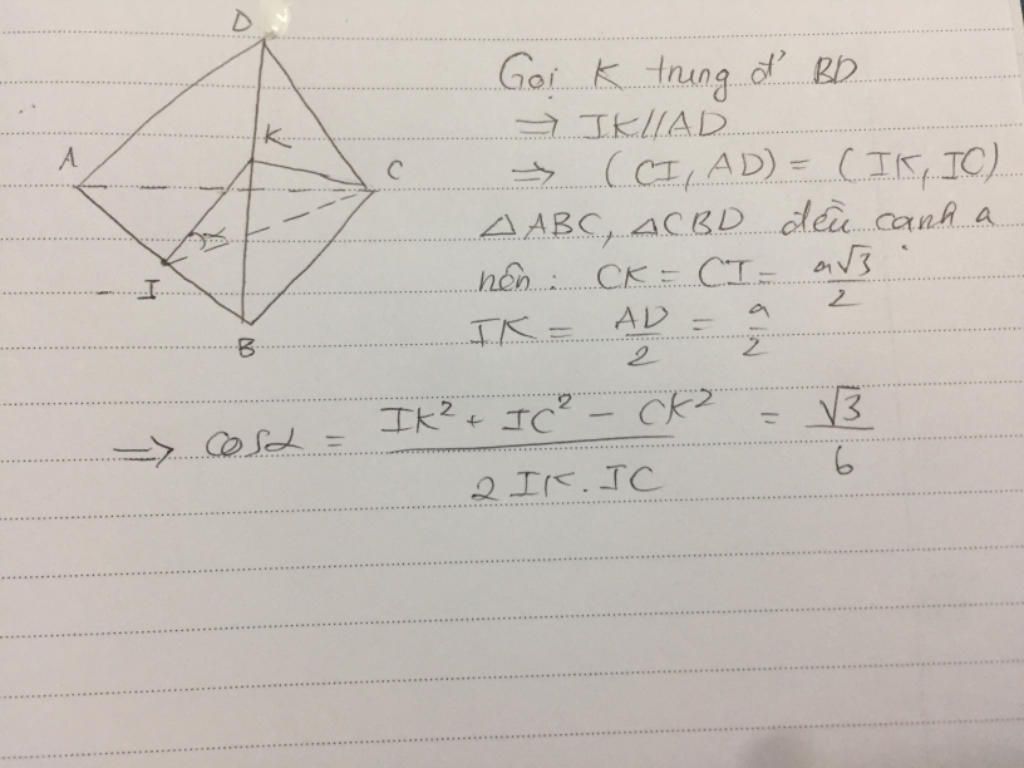 D
Gọi K trung đ' BD
⇒ IK//AD
K
A
C
⇒ (CI, AD) = (IK, IC)
ΔABC, ΔCBD đều cạnh a
α
I
nên: CK = CI = a√3/2
IK = AD/2 = a/2
B
⇒ cosα = (IK² + IC² - CK²)/(2 IK.IC) = √3/6